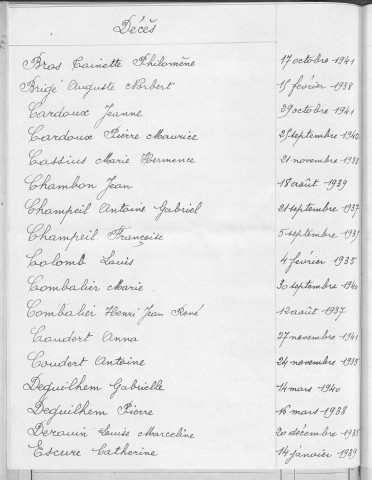 Décès
Bros Toinette Philomène 17 octobre 1941
Brigé Auguste Norbert 15 février 1938
Cardoux Jeanne 29 octobre 1941
Cardoux Pierre Maurice 25 septembre 1942
Cassius Marie Hermence 21 novembre 1933
Chambon Jean 18 août 1939
Champeil Antoine Gabriel 21 septembre 1937
Champeil Françoise 5 septembre
Colomb Louis 4 février 1935
Combalier Marie 30 septembre 1940
Combalier Henri Jean René 12 août 1937
Caudert Anna 27 novembre 1941
Coudert Antoine 24 novembre 1935
Deguilhem Gabrielle 14 mars 1940
Deguilhem Pierre 16 mars 1938
Derouin Louise Marceline 20 décembre 1935
Escure Catherine 14 janvier 1939